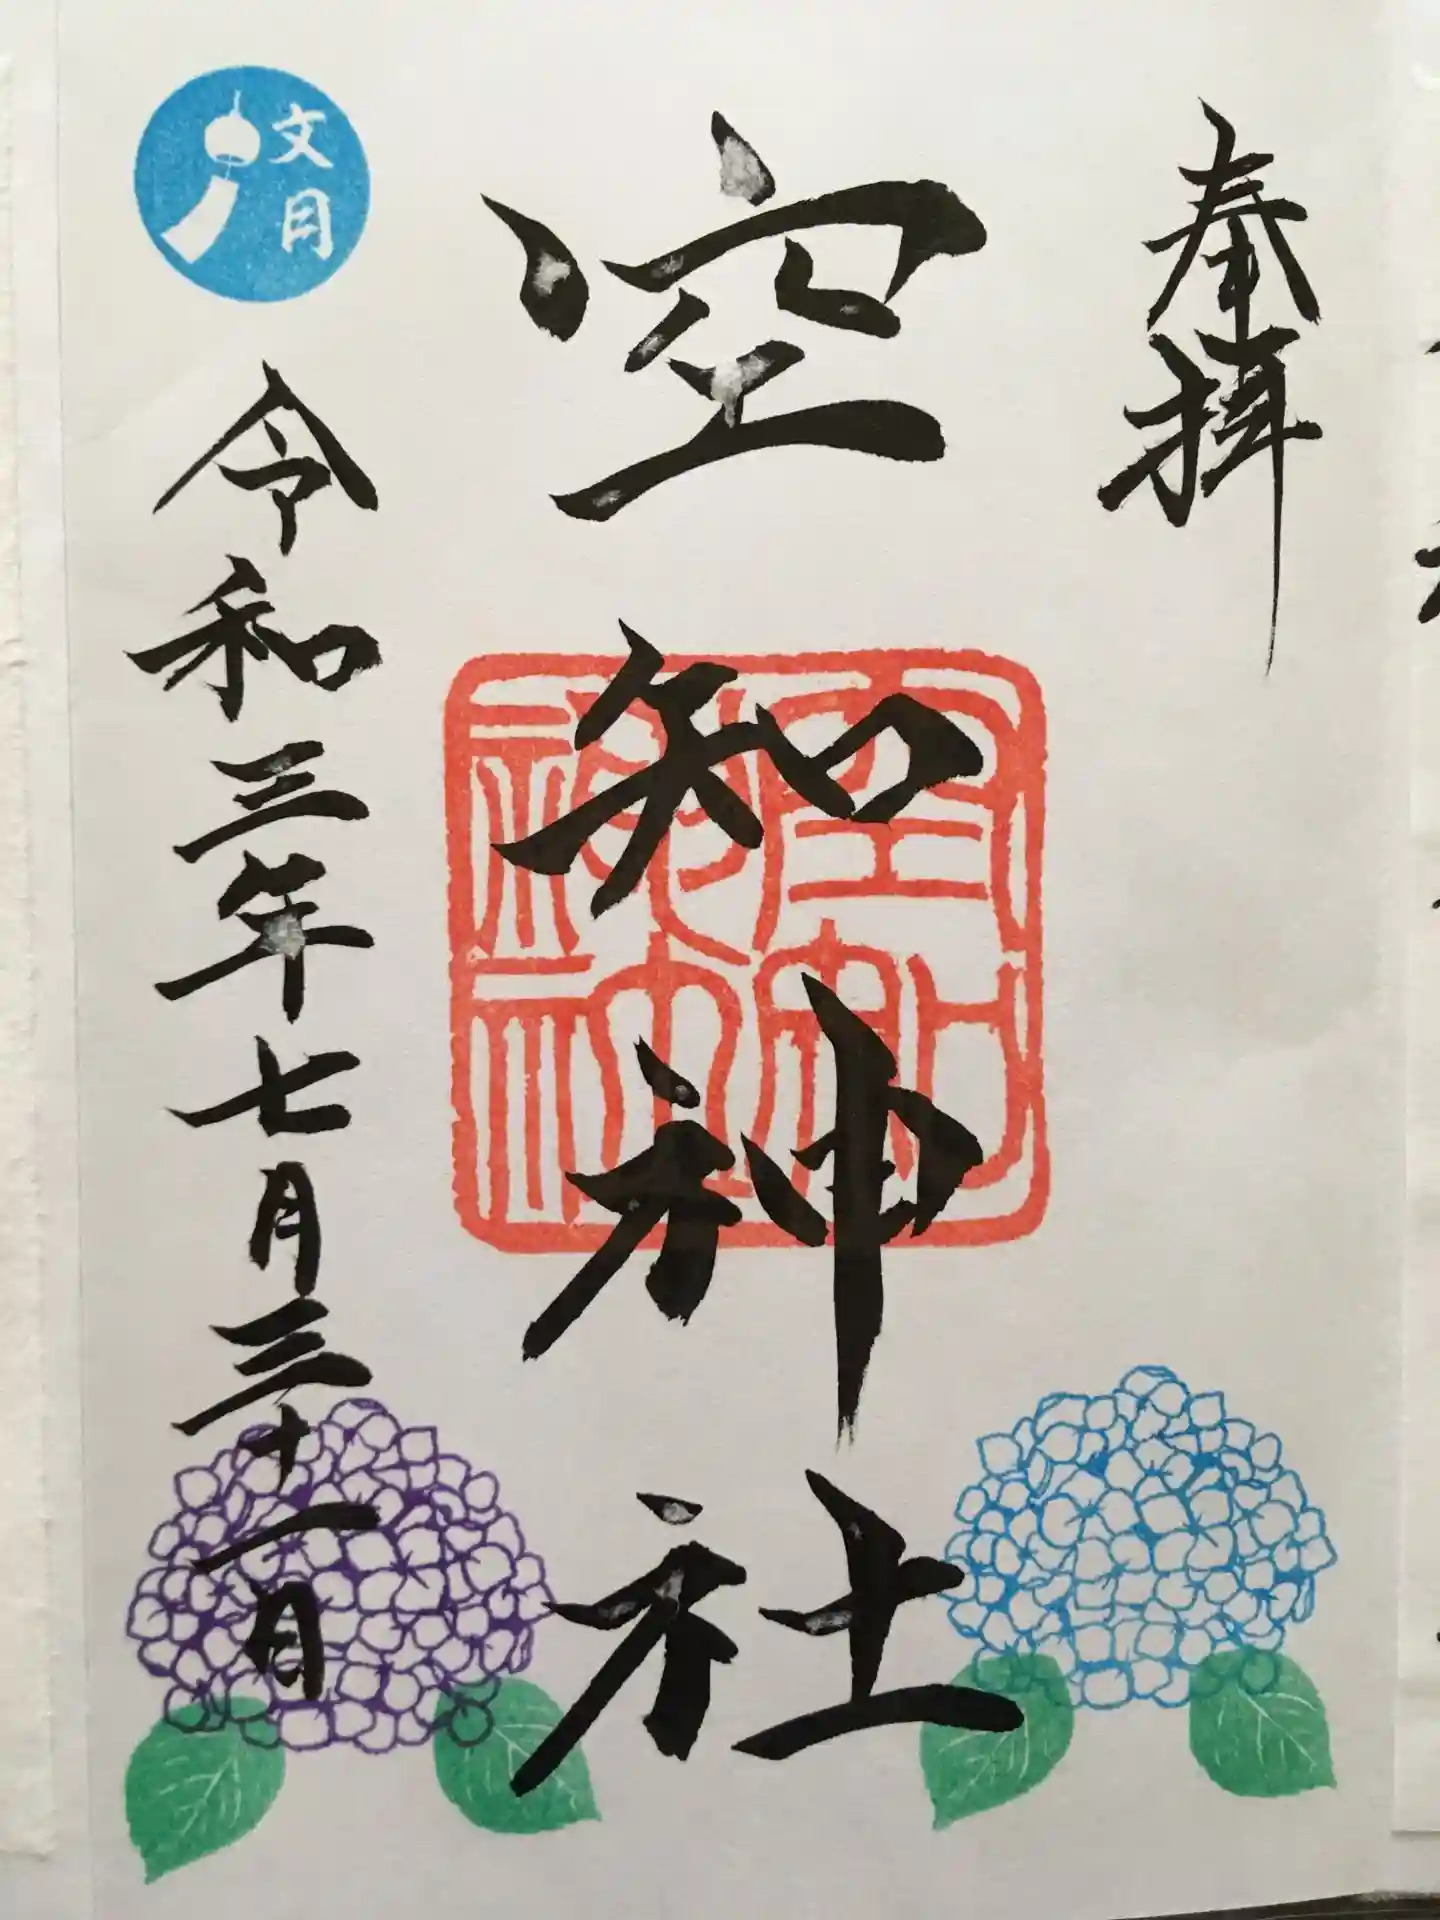 奉拝
空知神社
空知
神社
文月
令和三年七月三十一日